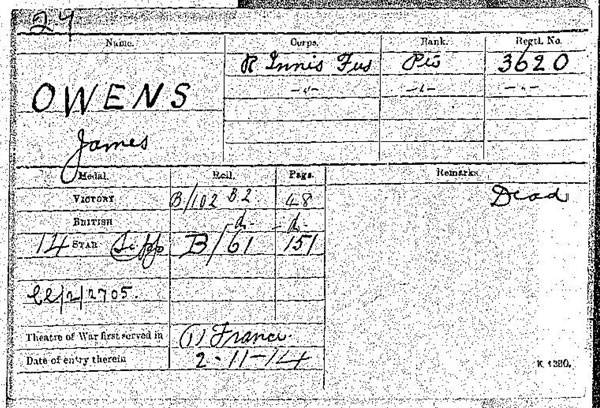 24
Name. Corps. Rank. Regtl. No.
OWENS R Innis Fus Pte 3620
James -"- -"- -"-
Medal. Roll. Page. Remarks.
VICTORY B/102 B2 48 Dead
BRITISH -do- -do-
14 STAR B/61 151
CL/2/2705.
Theatre of War first served in (1) France.
Date of entry therein 2-11-14
K 1380.